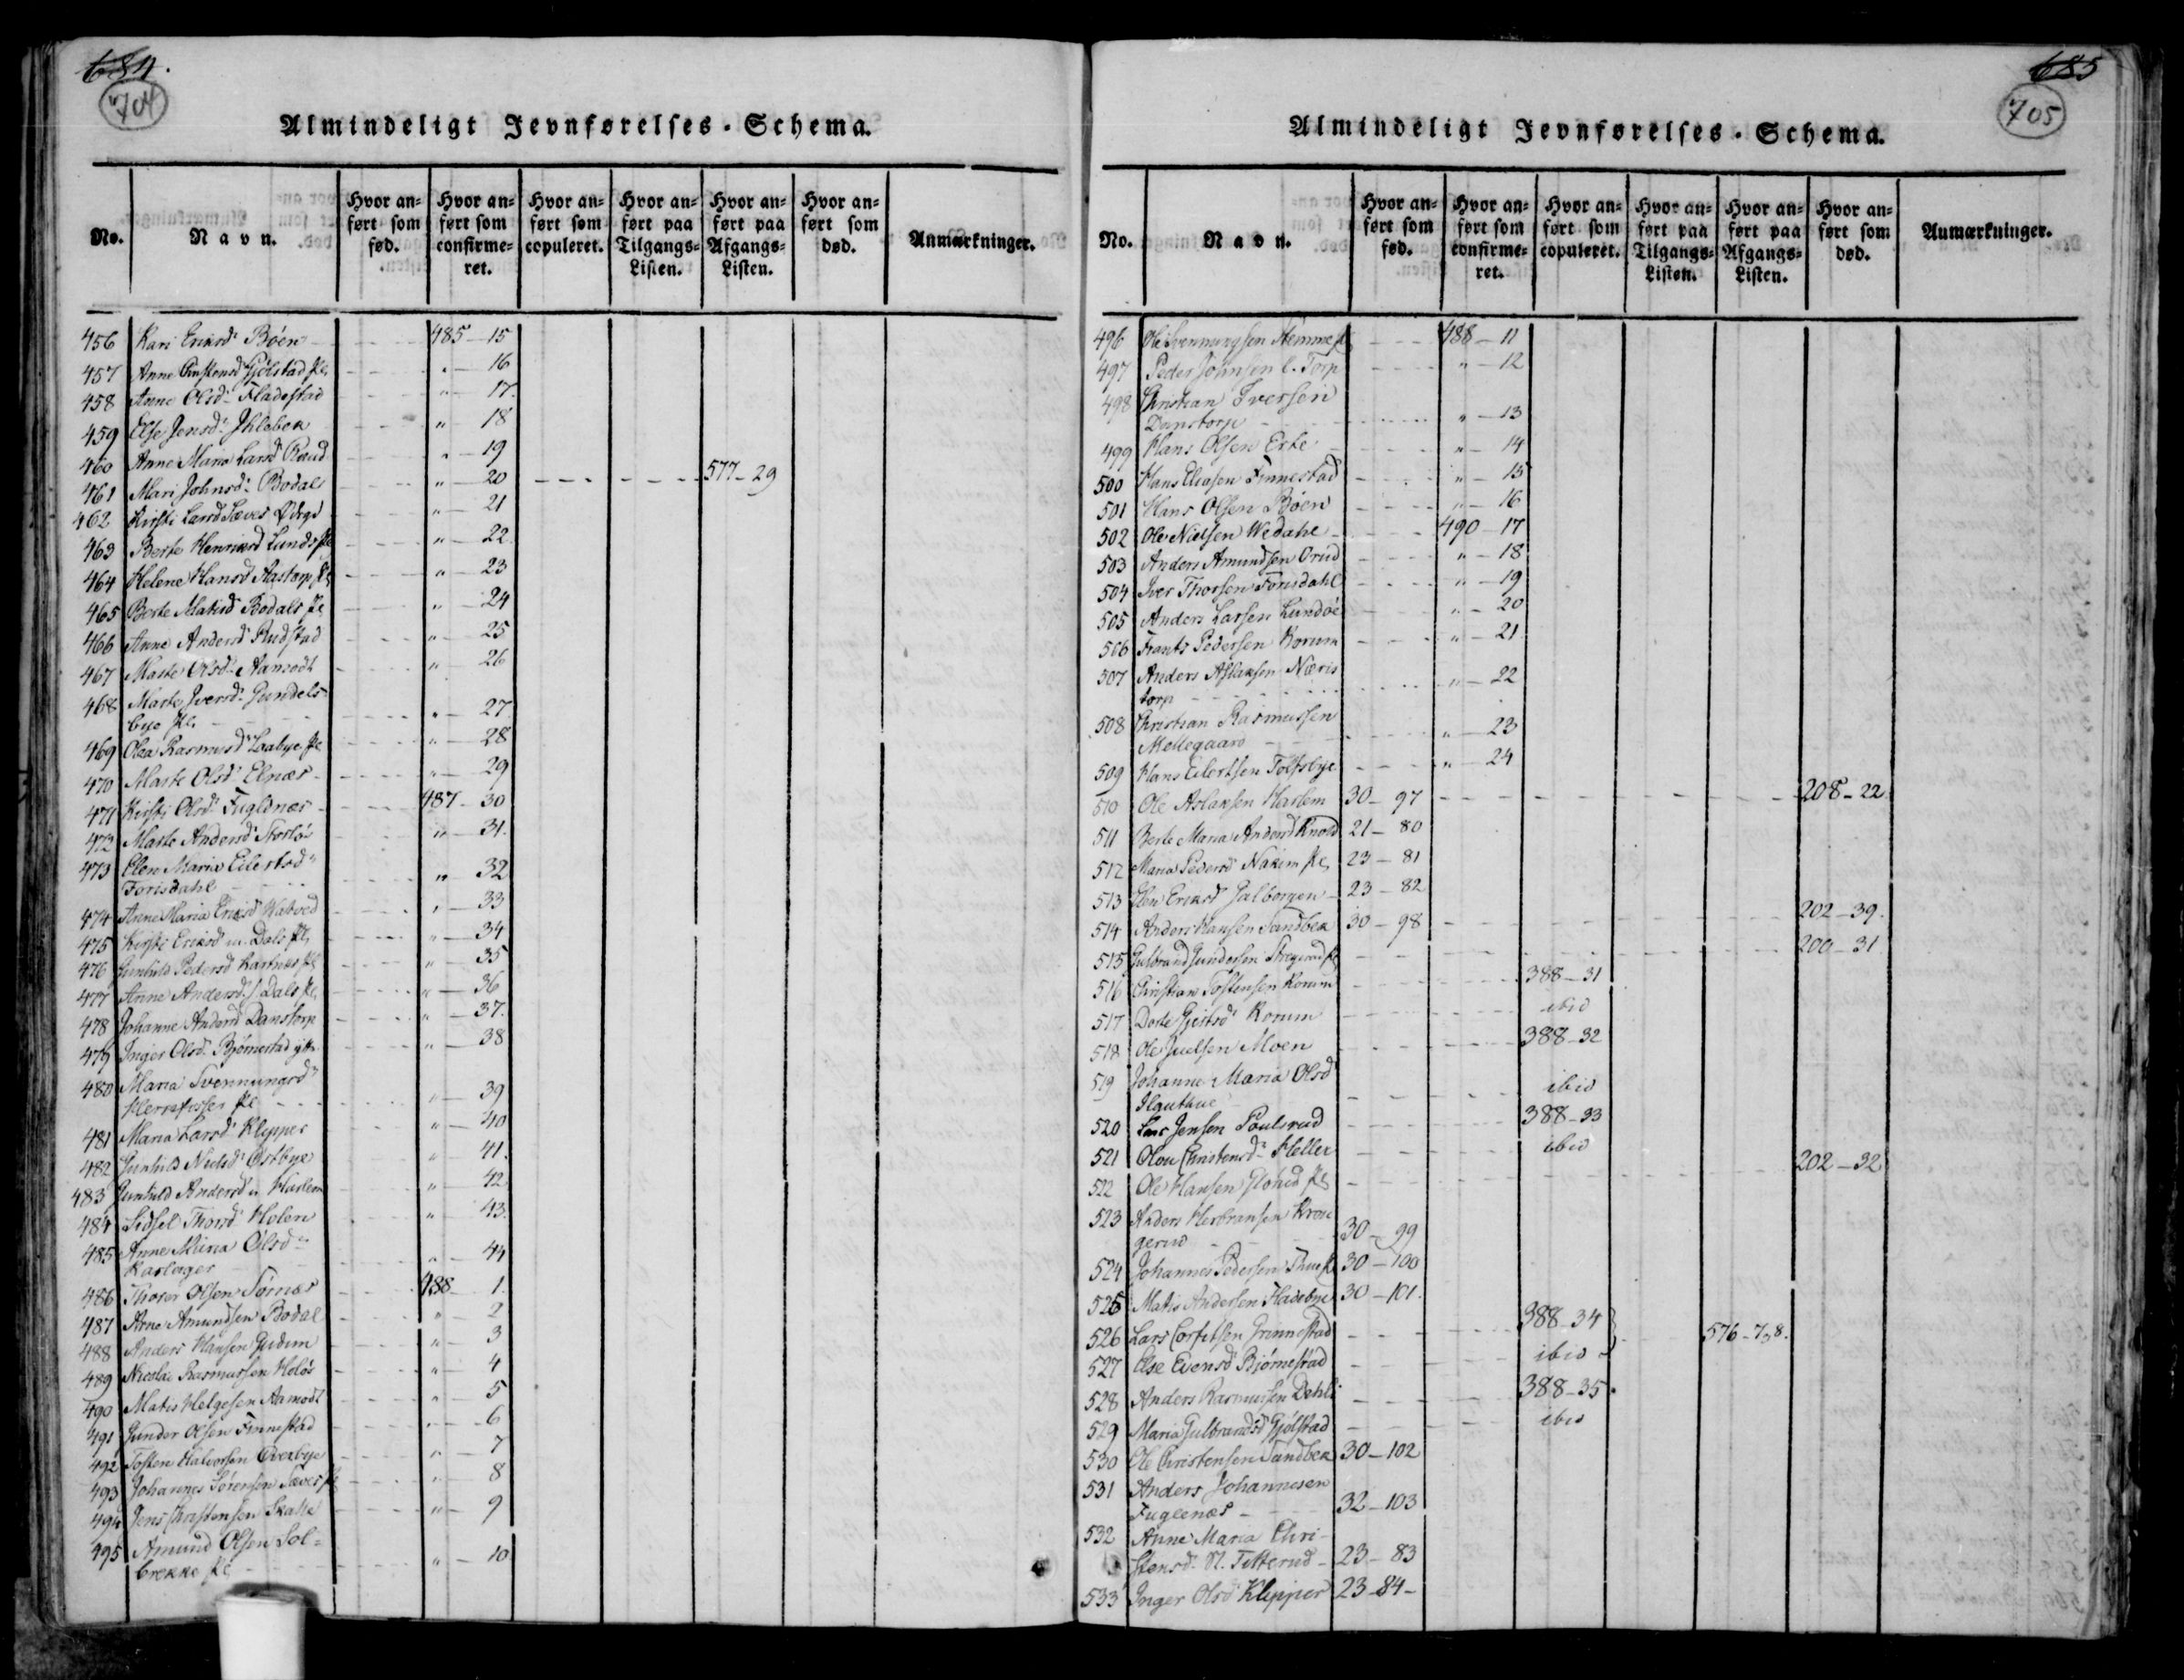 684.
704
Almindeligt Jevnførelses-Schema.
No. Navn. Hvor anført som fød. Hvor anført som confirmeret. Hvor anført som copuleret. Hvor anført paa Tilgangs-Listen. Hvor anført paa Afgangs-Listen. Hvor anført som død. Anmærkninger.
456 Kari Eriksd. Böen 485-15
457 Anne Christensd Gjölstad pl. " - 16
458 Anne Olsd. Fladestad " - 17.
459 Else Jensd. Ihlebek " - 18
460 Anne Maria Larsd Röud " - 19
461 Mari Johnsd. Bodal " - 20 577-29
462 Kirsti Larsd Sæves Ödegd " - 21
463 Berte Henriksd Lunds pl. " - 22
464 Helene Hansd Aastorp pl. " - 23
465 Berte Matisd Bodals pl. " - 24
466 Anne Andersd Rudstad " - 25
467 Marte Olsd. Aamodt " - 26
468 Marte Iversd. Gundels-
bye pl. " - 27
469 Olea Rasmusd. Laabye pl. " - 28
470 Marte Olsd. Elnæs " - 29
471 Kirsti Olsd. Fuglenæs 487-30
472 Marte Andersd. " - 31.
473 Elen Maria Eilertsd.
Forisdahl " - 32
474 Anne Maria Eriksd. " - 33
475 Kirsti Eriksd. n. Dals pl. " - 34
476 Gunhild Pedersd pl. " - 35
477 Anne Andersd. s. Dals pl. " - 36
478 Johanne Andersd Danstorp " - 37.
479 Inger Olsd. Bjørnestad ytt. " - 38
480 Maria Svenningsd.
pl. " - 39
481 Maria Larsd. Klepper " - 40
482 Gunhild Nielsd. Østbye " - 41.
483 Gunhild Andersd n. Harlem " - 42
484 Sidsel Thorsd. Holen " - 43.
485 Anne Maria Olsd.
Kaslager " - 44
486 Thorer Olsen Törnæs 488-1.
487 Arne Amundsen Bodal " - 2
488 Anders Hansen Gudim " - 3
489 Nicolai Rasmussen Holös " - 4
490 Matis Helgesen Aamodt " - 5
491 Gunder Olsen Finnestad " - 6
492 Tosten Halvorsen Overbye " - 7
493 Johannes Sörensen Sæves pl. " - 8
494 Jens Christensen Skatte " - 9
495 Amund Olsen Sol=
brekke pl. " - 10
685
705
Almindeligt Jevnførelses-Schema.
No. Navn. Hvor anført som fød. Hvor anført som confirmeret. Hvor anført som copuleret. Hvor anført paa Tilgangs-Listen. Hvor anført paa Afgangs-Listen. Hvor anført som død. Anmærkninger.
496 Ole Svenningsen pl. 488-11
497 Peder Johnsen l. Torp " - 12
498 Christian Iversen
Danstorp " - 13
499 Hans Olsen Erte " - 14
500 Hans Eliasen Finnestad " - 15
501 Hans Olsen Böen " - 16
502 Ole Nielsen Wedahl 490-17
503 Anders Amundsen Orud " - 18
504 Iver Thorsen Forisdahl " - 19
505 Anders Larsen Lundöe " - 20
506 Frants Pedersen Korum " - 21
507 Anders Aslaksen Næris
torp " - 22
508 Christian Rasmussen
Mellegaard " - 23
509 Hans Eilertsen Tolfsbye " - 24
510 Ole Aslaksen Harlem 30-97 208-22
511 Berte Maria Andersd Knold 21-80
512 Maria Pedersd Nakim pl. 23-81
513 Elen Eriksd Galborgen 23-82
514 Anders Hansen Sandbek 30-98 202-39.
515 Gulbrand Gundersen pl. 200-31
516 Christian Tostensen Korum 388-31
517 Dorte Gjertsd Korum ibid
518 Ole Juelsen Moen 388-32
519 Johanne Maria Olsd
ibid
520 Lars Jensen Poulsrud 388-33
521 Olou Christensd. Heller ibid
522 Ole Hansen pl. 202-32
523 Anders Herbransen Krose
gerud 30-99
524 Johannes Pedersen Thue pl. 30-100
525 Matis Andersen Haabye 30-101.
526 Lars Corfitsen Grinnestad 388-34 576-7,8.
527 Else Evensd Bjørnestad ibid
528 Anders Rasmusen Dehli 388-35.
529 Maria Gulbrandsd Gjølstad ibid
530 Ole Christensen Sandbek 30-102
531 Anders Johannesen
Fuglenæs 32-103
532 Anne Maria Chri-
stensd. N. Fitterud 23-83
533 Inger Olsd Klepper 23-84-